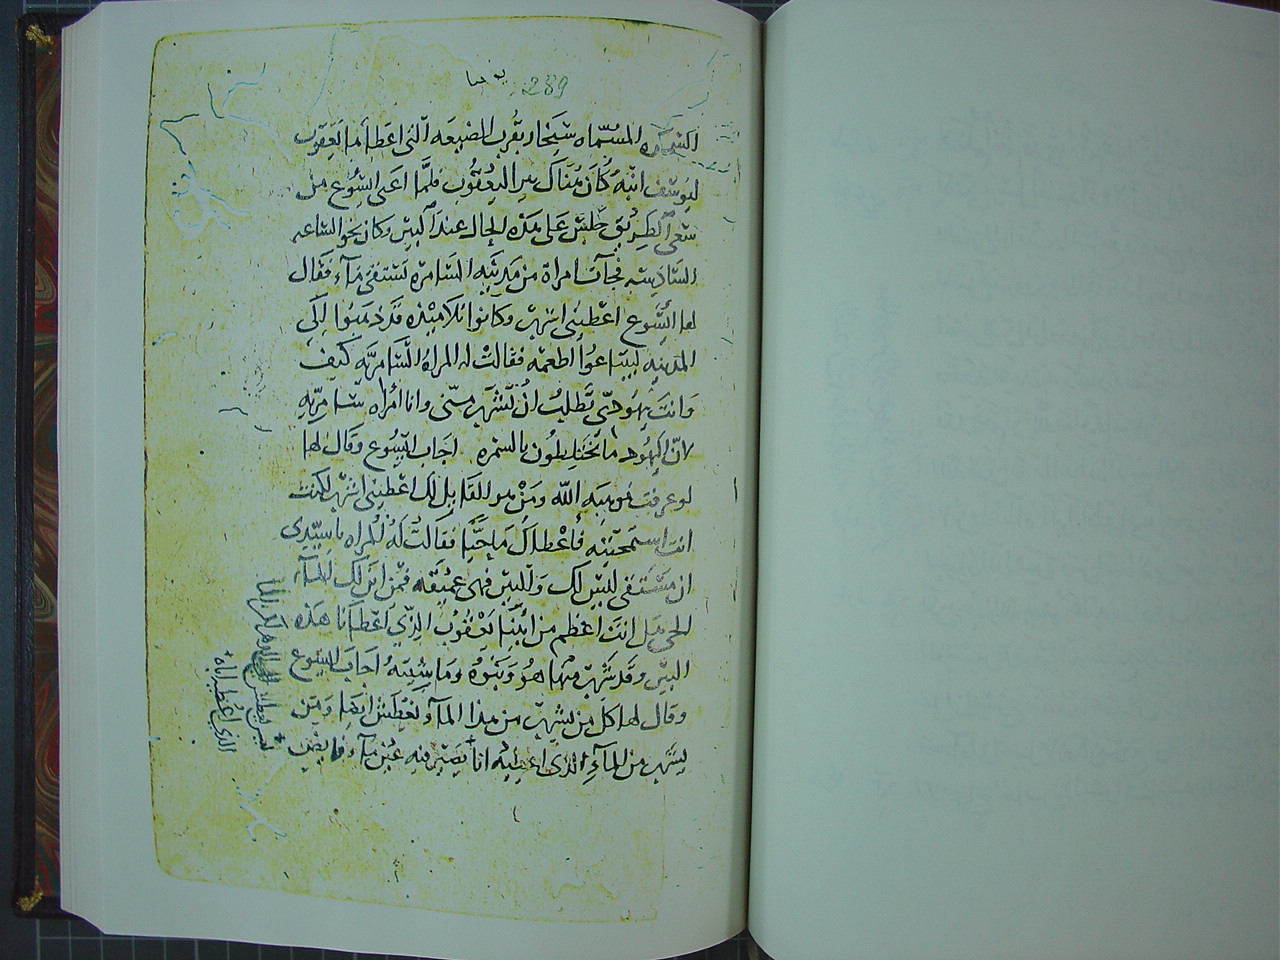 يوحنا 289
السامره المسمّاه شيخار بقرب الضيعه التى اعطاها يعقوب
ليوسف ابنه وكان هناك بير اليعقوب فلمّا اعيى اليسوع من
سعى الطريق جلس على هذه الحال عند البير وكان نحو الساعه
السادسه فجآت امراة من مدينه السامره تستقى مآء فقال
لها اليسوع اعطينى اشرب وكانوا تلاميذه قد ذهبوا الى
المدينه ليبتاعوا اطعمه فقالت له المراه السّامريّه كيف
وانت يهودىّ تطلب ان تشرب منّى وانا امراه سامريّه
لانّ اليهود ما يختلطون بالسمره اجاب اليسوع وقال لها
لو عرفت موهبه اللّه ومن هو القايل لك اعطينى اشرب لكنت
انت استمحتيه فاعطاك مآ حيّا فقالت له المراه ياسيّدى
ان مستقى ليس لك والبير فهى عميقه فمن اين لك المآء
الحى هل انت اعظم من ابينا يعقوب الذي اعطانا هذه
البير وقد شرب منها هو وبنوه وماشيته اجاب اليسوع
وقال لها كل من يشرب من هذا المآء يعطش ايضا ومن
يشرب من المآء الذى اعطيه انا يصير فيه عين مآء فايض
ليس يعطش الى الدهر لكن المآ
الذي اعطيه اياه